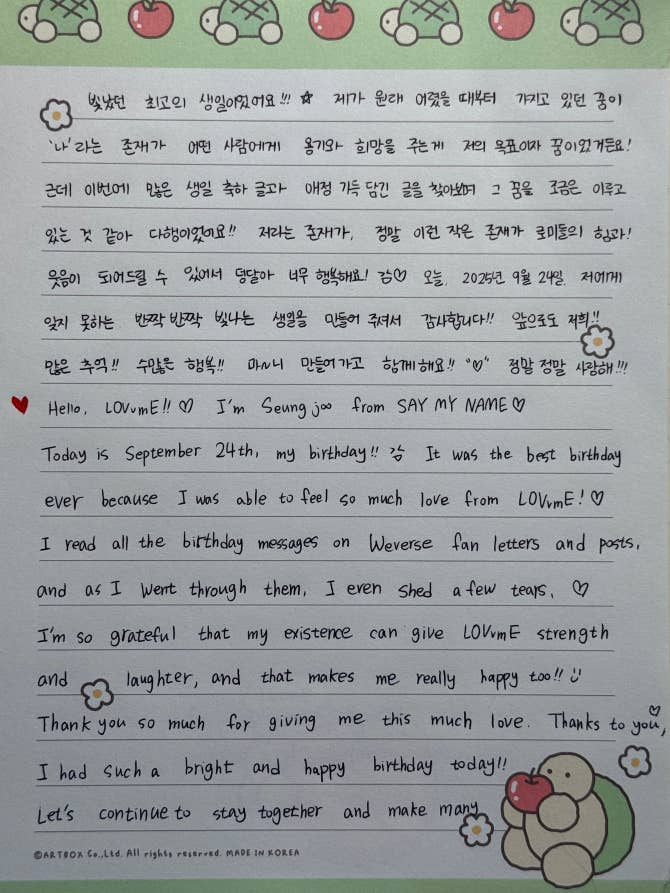 빛났던 최고의 생일이었어요!!! ☆ 제가 원래 어렸을 때부터 가지고 있던 꿈이
'나'라는 존재가 어떤 사람에게 용기와 희망을 주는게 저의 목표이자 꿈이었거든요!
근데 이번에 많은 생일 축하 글과 애정 가득 담긴 글을 찾아보며 그 꿈을 조금은 이루고
있는 것 같아 다행이었어요!! 저라는 존재가, 정말 이런 작은 존재가 로미들의 힘과!
웃음이 되어드릴 수 있어서 덩달아 너무 행복해요! 김♡ 오늘, 2025년 9월 24일. 저에게
잊지 못하는 반짝반짝 빛나는 생일을 만들어 주셔서 감사합니다!! 앞으로도 저희!!
많은 추억!! 수많은 행복!! 마~니 만들어가고 함께해요!! "♡" 정말 정말 사랑해!!!
♥ Hello, LOVvmE!! ♡ I'm Seungjoo from SAY MY NAME♡
Today is September 24th, my birthday!! It was the best birthday
ever because I was able to feel so much love from LOVvmE! ♡
I read all the birthday messages on Weverse fan letters and posts,
and as I went through them, I even shed a few tears. ♡
I'm so grateful that my existence can give LOVvmE strength
and laughter, and that makes me really happy too!!
Thank you so much for giving me this much love. Thanks to you,♡
I had such a bright and happy birthday today!!
Let's continue to stay together and make many
©ARTBOX Co.,Ltd. All rights reserved. MADE IN KOREA